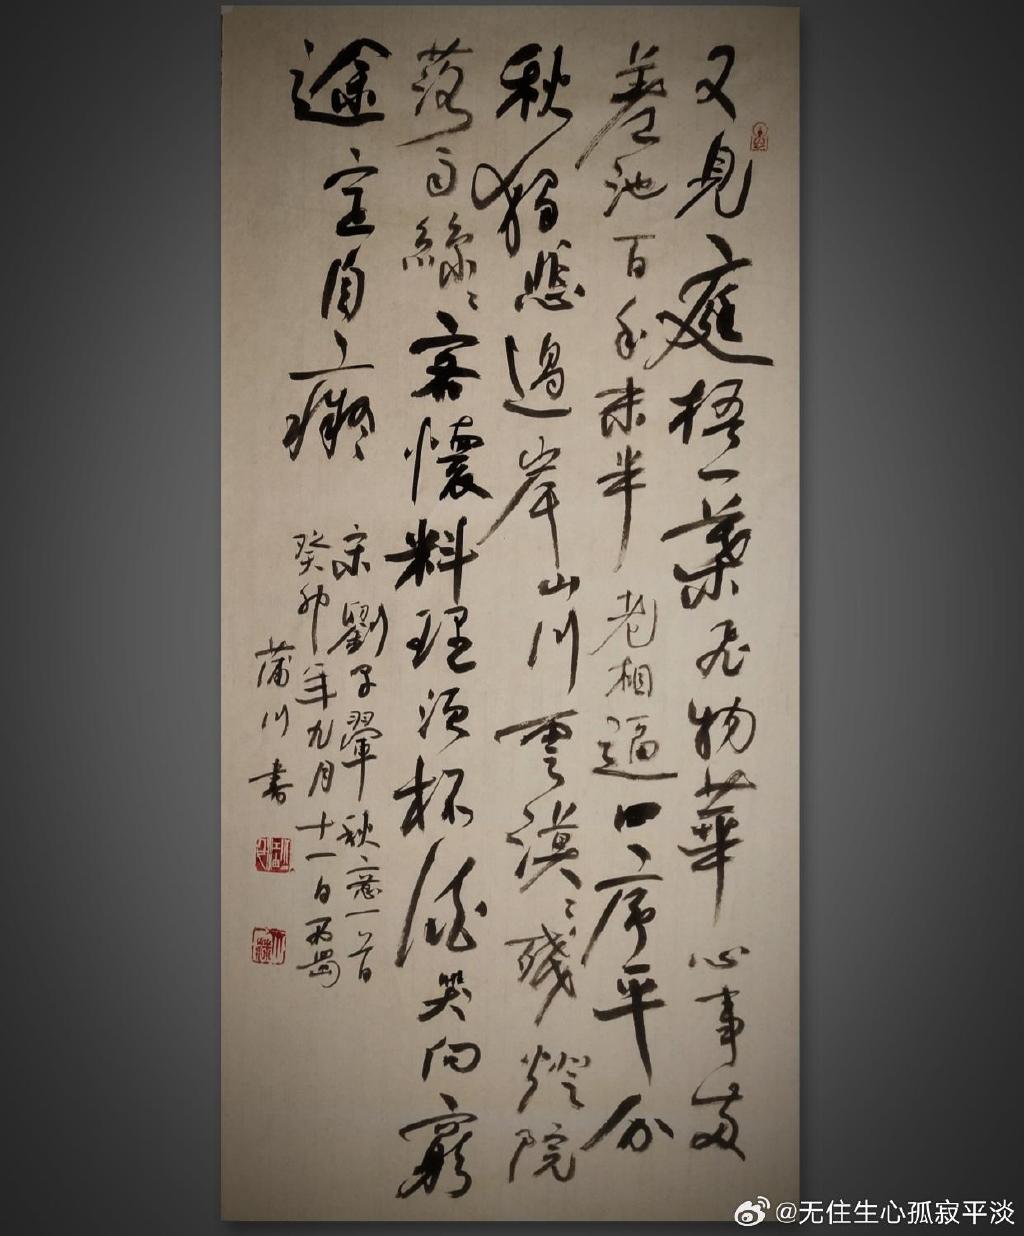 又見庭梧一葉飛物華心事兩
差池百年未半老相逼四序平分
秋獨悲過岸山川雲漠〻殘燈院
落雨絲〻客懷料理須杯酒哭向窮
途定自癡
宋劉子翬秋意一首
癸卯年九月十一日西蜀
蒲川書
@无住生心孤寂平淡